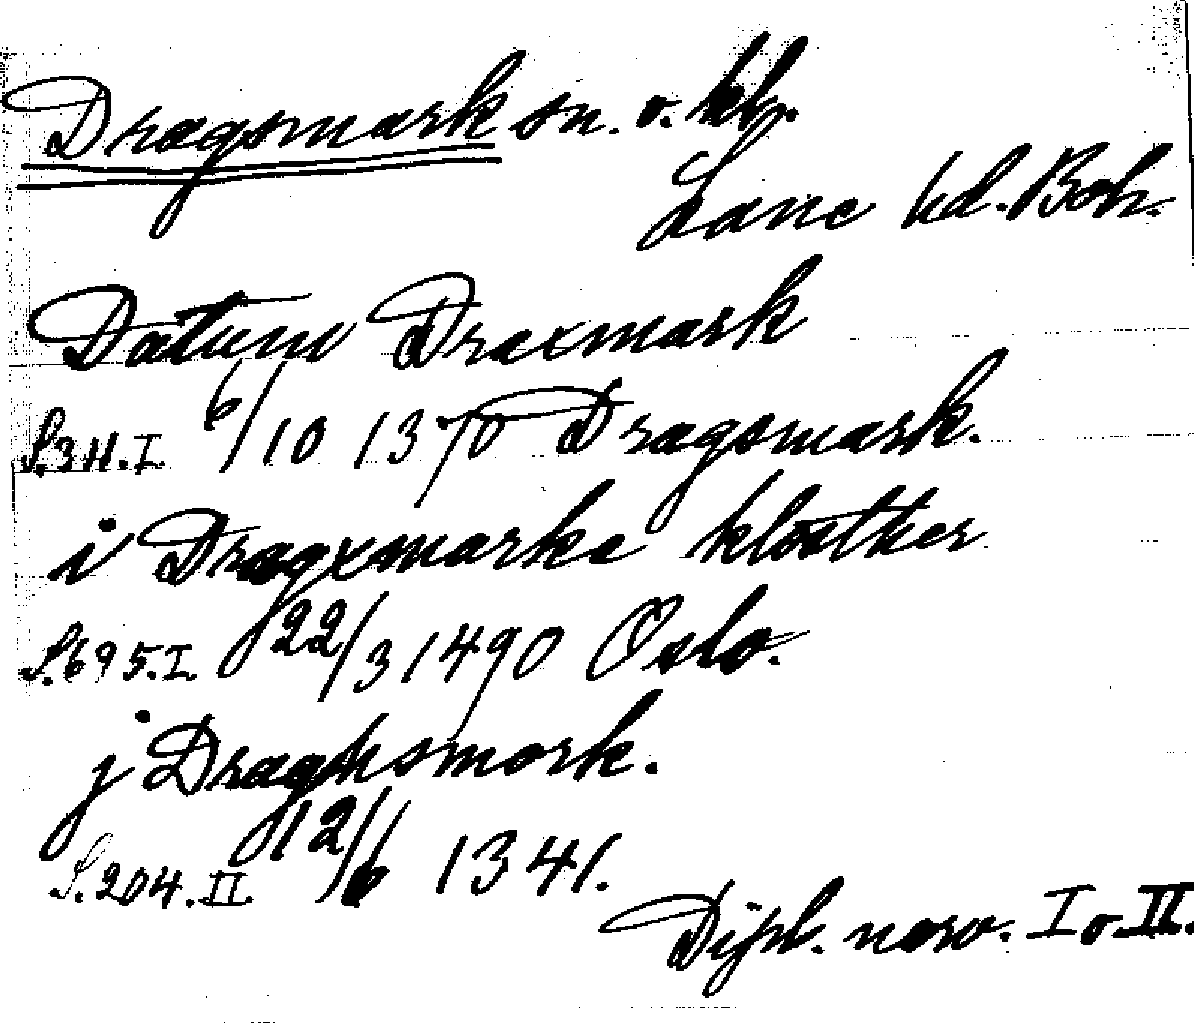 Dragsmark sn. o. kl.
Lane hd. Boh.
Datum Draxmark
S. 311. I. 6/10 1370 Dragsmark.
i Dragxmarke kloster
S. 695. I. 22/3 1490 Oslo.
j Draghsmork.
S. 204. II. 12/6 1341.
Dipl. norv. I o. II.